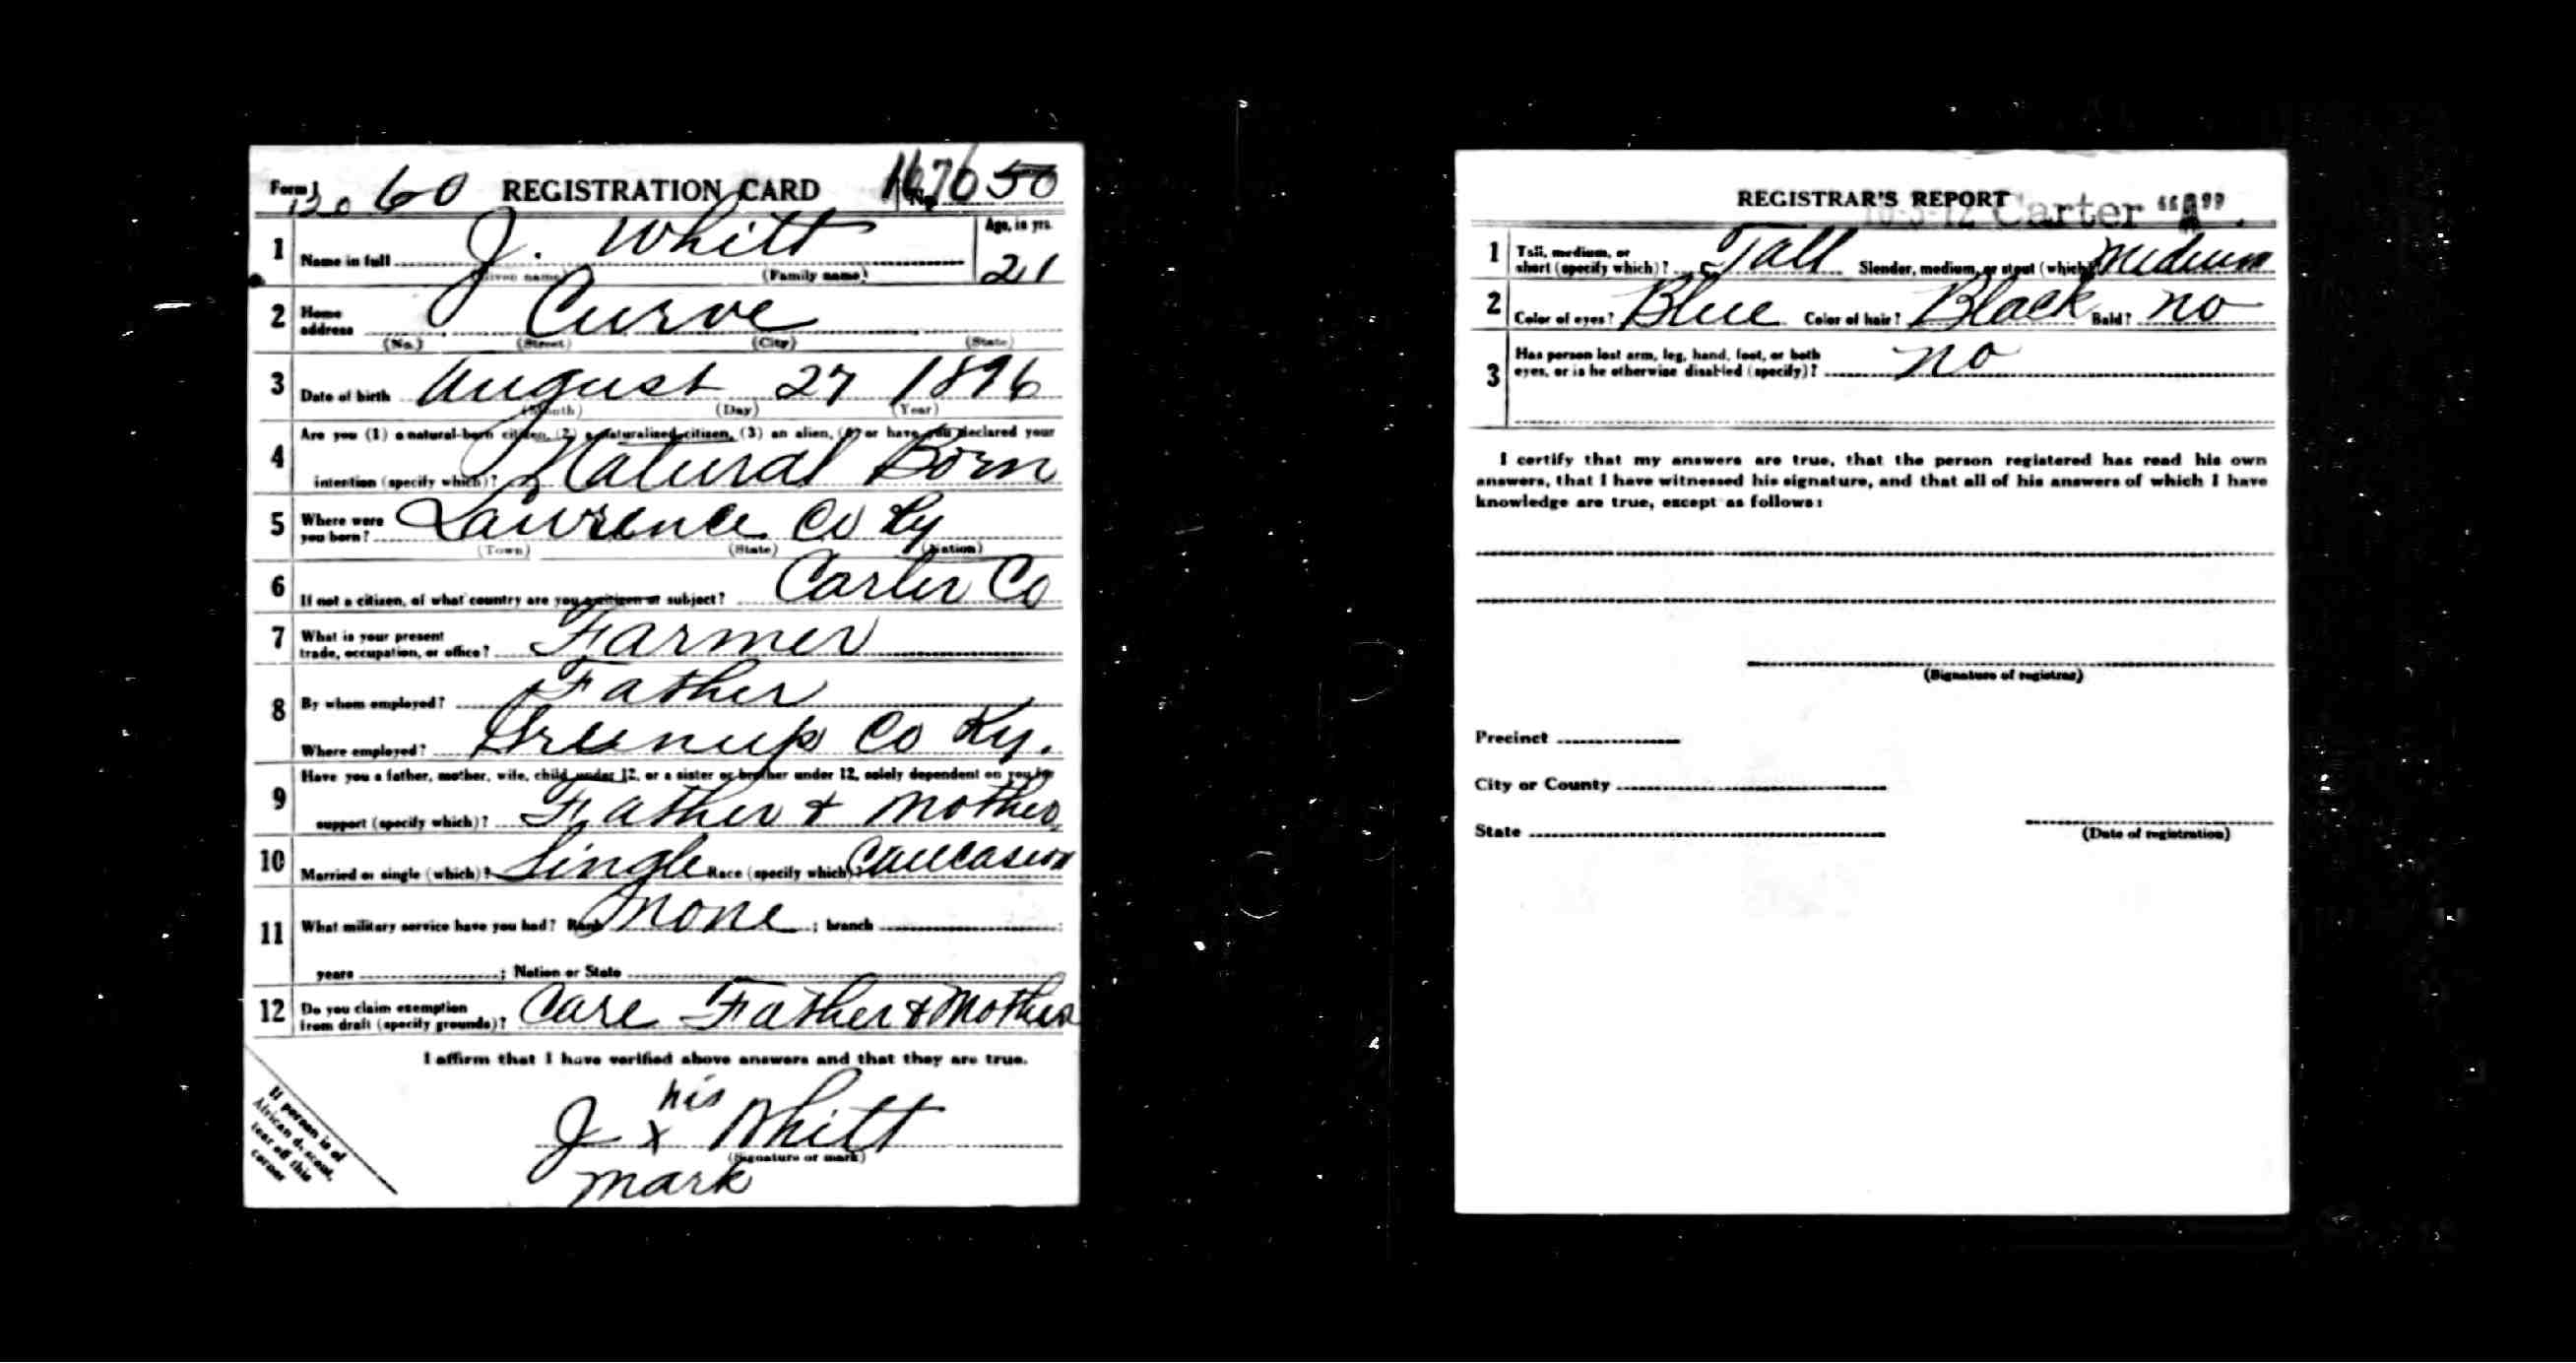 Form 1 60 REGISTRATION CARD No. 50
1 Name in full J. Whitt Age, in yrs. 21
(Given name) (Family name)
2 Home address Curve
(No.) (Street) (City) (State)
3 Date of birth August 27 1896
(Month) (Day) (Year)
4 Are you (1) a natural-born citizen, (2) a naturalized citizen, (3) an alien, (4) or have you declared your
intention (specify which)? Natural Born
5 Where were you born? Lawrence Co Ky
(Town) (State) (Nation)
6 If not a citizen, of what country are you a citizen or subject? Carter Co
7 What is your present trade, occupation, or office? Farmer
8 By whom employed? Father
Where employed? Greenup Co Ky.
9 Have you a father, mother, wife, child under 12, or a sister or brother under 12, solely dependent on you for
support (specify which)? Father & Mother
10 Married or single (which)? Single Race (specify which)? Caucasion
11 What military service have you had? Rank None ; branch
years ; Nation or State
12 Do you claim exemption from draft (specify grounds)? Care Father & Mother
I affirm that I have verified above answers and that they are true.
his
J x Whitt
(Signature or mark)
mark
If person is of
African descent,
tear off this
corner
REGISTRAR'S REPORT
Carter "A".
1 Tall, medium, or short (specify which)? Tall Slender, medium, or stout (which)? Medium
2 Color of eyes? Blue Color of hair? Black Bald? no
3 Has person lost arm, leg, hand, foot, or both
eyes, or is he otherwise disabled (specify)? no
I certify that my answers are true, that the person registered has read his own
answers, that I have witnessed his signature, and that all of his answers of which I have
knowledge are true, except as follows:
(Signature of registrar)
Precinct
City or County
State
(Date of registration)